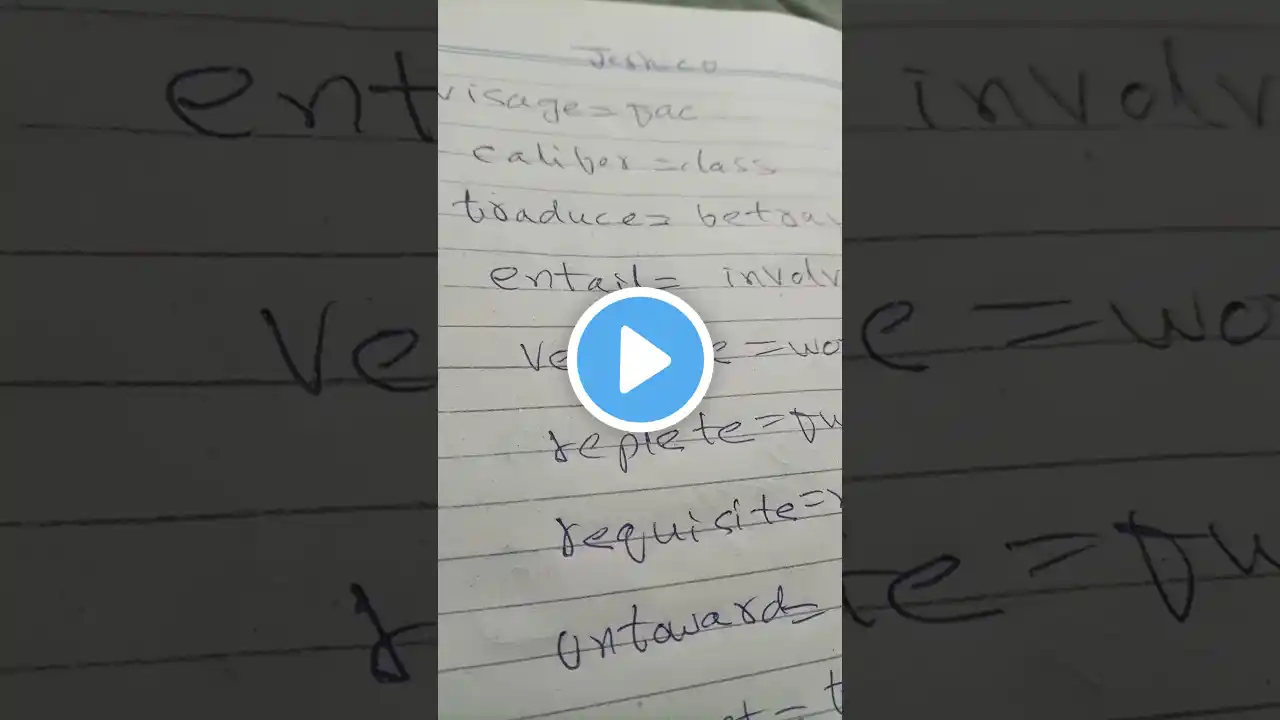 visage= fac
caliber = class
traduce= betray
entail= involv
ve e = wo
replete = fu
requisite =
untoward=